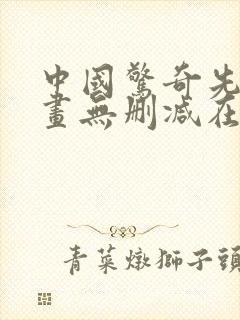 中國驚奇先
畫無刪減在
青菜燉獅子頭